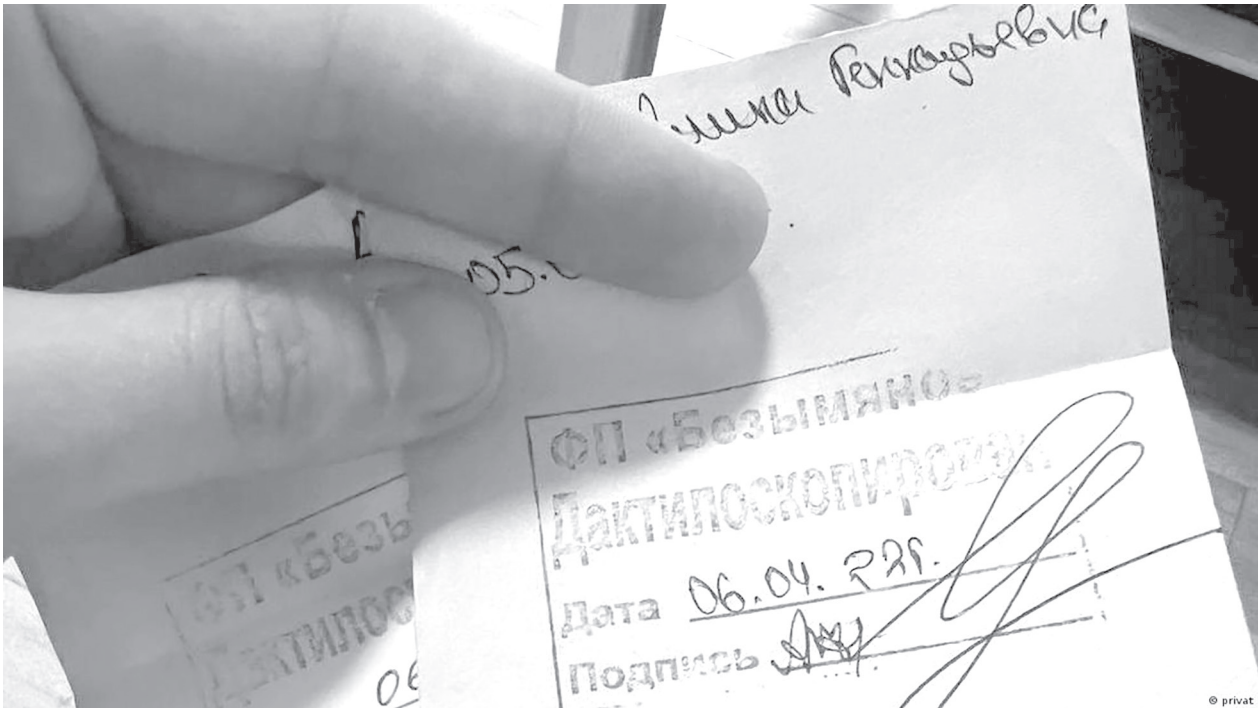 Геннадьевич
05.
ФП «Безымяно»
Дактилоскопирован
Дата 06.04.22г.
Подпись
ФП «Безы
Дактилос
06
© privat